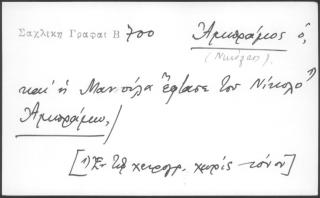 Σαχλίκη Γραφαὶ Β 700 Ἀμπράμος ὁ,
(Νικόλαος).
καὶ ἡ Μανιόλα ἔφτασε τοῦ Νίκολο¹⁾
Ἀμπράμου,
[¹⁾ Ἐν τῷ χειρογρ. χωρὶς τόνον]